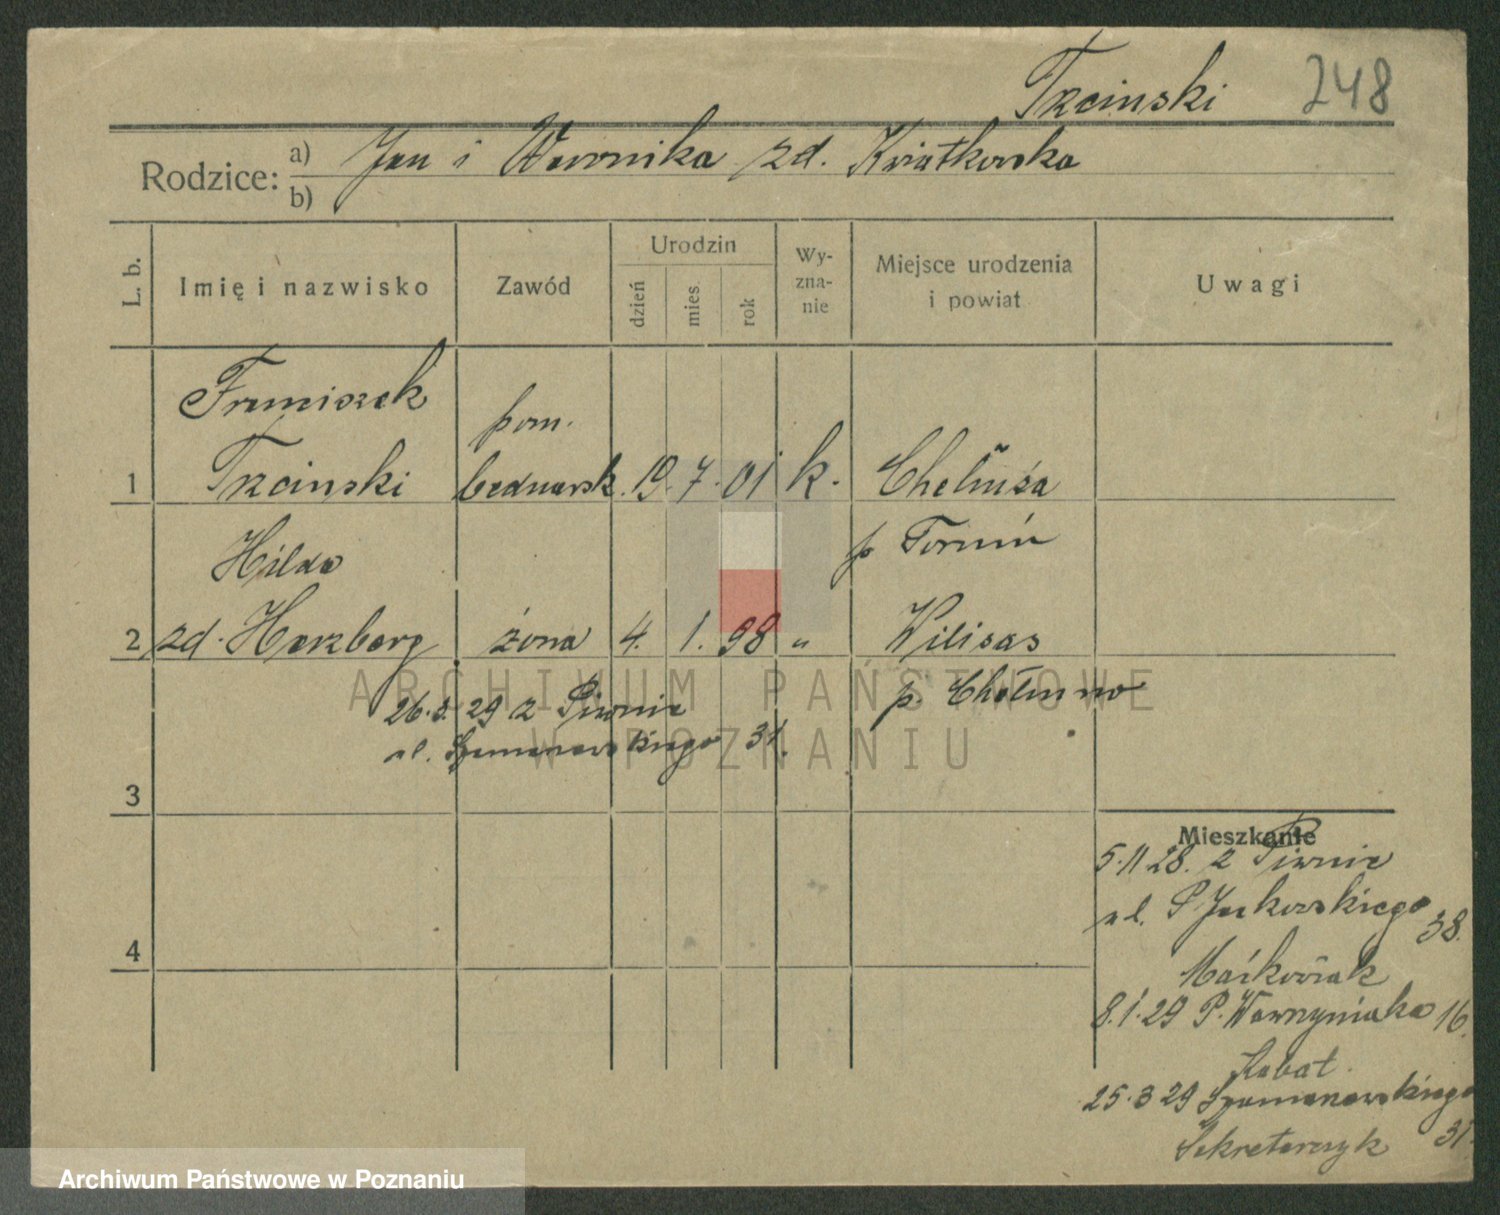 Trzcinski 248
Rodzice: a) Jan i Weronika zd. Kwiatkowska
b)
L. b. Imię i nazwisko Zawód Urodzin dzień mies. rok Wy-zna-nie Miejsce urodzenia i powiat Uwagi
Franciszek
pom.
1 Trzcinski bednarsk. 19. 7. 01 k. Chełmża
Hilda p Toruń
2 zd. Herzberg żona 4. 1. 98 " Wilisas
p. Chełmno
26.3.29 z Piwnic
ul. Szamarzewskiego 31.
3
4
Mieszkanie
5.11.28. z Piwnic
ul. P Jackowskiego 38.
Maćkowiak
8.1.29 P. Wawrzyniaka 16.
Rabat
25.3 29 Szamarzewskiego 31.
Sekretarczyk
ARCHIWUM PAŃSTWOWE
W POZNANIU
Archiwum Państwowe w Poznaniu